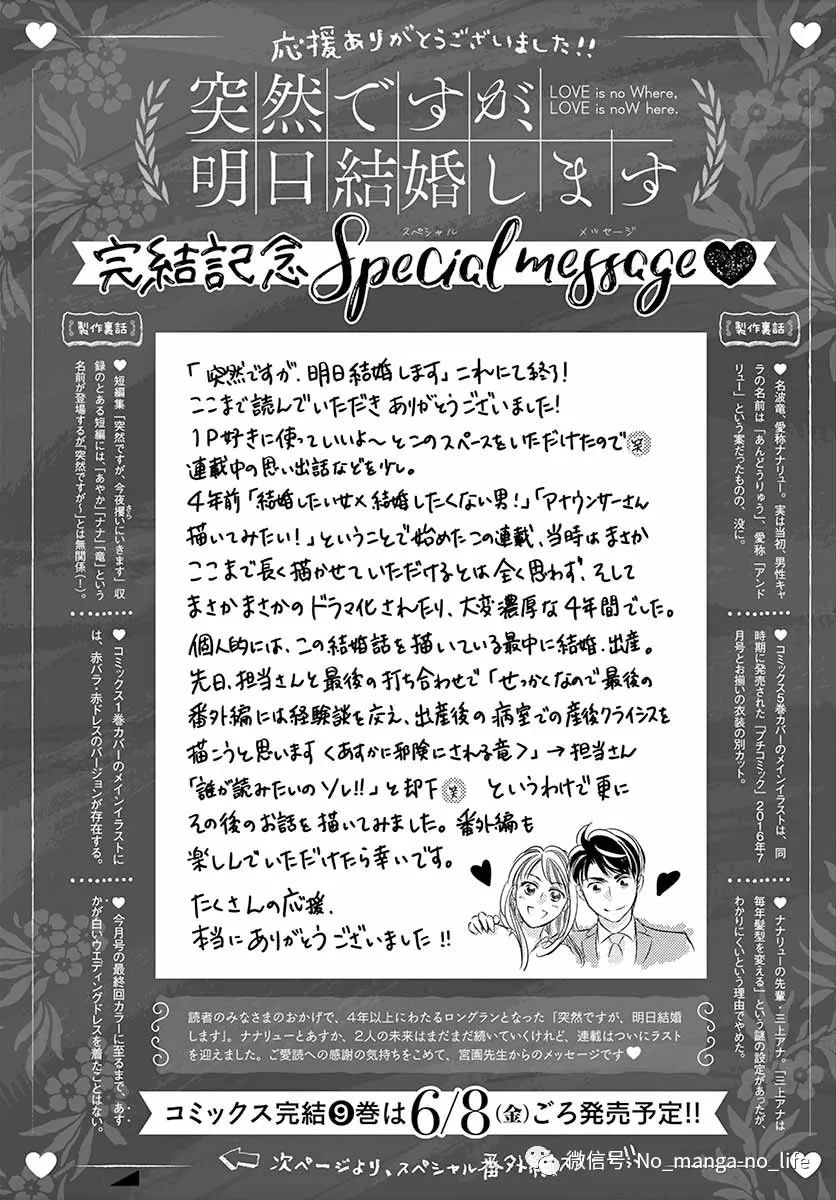 応援ありがとうございました!!
突然ですが、
明日結婚します
LOVE is no Where,
LOVE is noW here.
完結記念 Special message♥
スペシャル
メッセージ
製作裏話
♥名波竜、愛称ナナリュー。実は当初、男性キャ
ラの名前は「あんどうりゅう」、愛称「アンド
リュー」という案だったものの、没に。
♥コミックス5巻カバーのメインイラストは、同
時期に発売された「プチコミック」2016年7
月号とお揃いの衣装の別カット。
♥ナナリューの先輩・三上アナ。「三上アナは
毎年髪型を変える」という謎の設定があったが、
わかりにくいという理由でやめた。
「突然ですが、明日結婚します」これにて終了!
ここまで読んでいただきありがとうございました!
1P好きに使っていいよ〜とこのスペースをいただけたので笑
連載中の思い出話などを少し。
4年前「結婚したい女×結婚したくない男!」「アナウンサーさん
描いてみたい!」ということで始めたこの連載、当時はまさか
ここまで長く描かせていただけるとは全く思わず、そして
まさかまさかのドラマ化されたり、大変濃厚な4年間でした。
個人的には、この結婚話を描いている最中に結婚、出産。
先日、担当さんと最後の打ち合わせで「せっかくなので最後の
番外編には経験談を交え、出産後の病室での産後クライシスを
描こうと思います<あすかに邪険にされる竜>」→担当さん
「誰が読みたいのソレ!!」と却下笑 というわけで更に
その後のお話を描いてみました。番外編も
楽しんでいただけたら幸いです。
たくさんの応援、
本当にありがとうございました!!
製作裏話
♥短編集「突然ですが、今夜攫いにいきます」収
さら
録のとある短編には、「あやか」「ナナ」「竜」という
名前が登場するが「突然ですが〜」とは無関係(!)。
♥コミックス1巻カバーのメインイラストに
は、赤バラ・赤ドレスのバージョンが存在する。
♥今月号の最終回カラーに至るまで、あす
かが白いウエディングドレスを着たことはない。
読者のみなさまのおかげで、4年以上にわたるロングランとなった「突然ですが、明日結婚
します」。ナナリューとあすか、2人の未来はまだまだ続いていくけれど、連載はついにラスト
を迎えました。ご愛読への感謝の気持ちをこめて、宮園先生からのメッセージです♥
コミックス完結❾巻は6/8(金)ごろ発売予定!!
次ページより、スペシャル番外編
微信号: No_manga-no_life